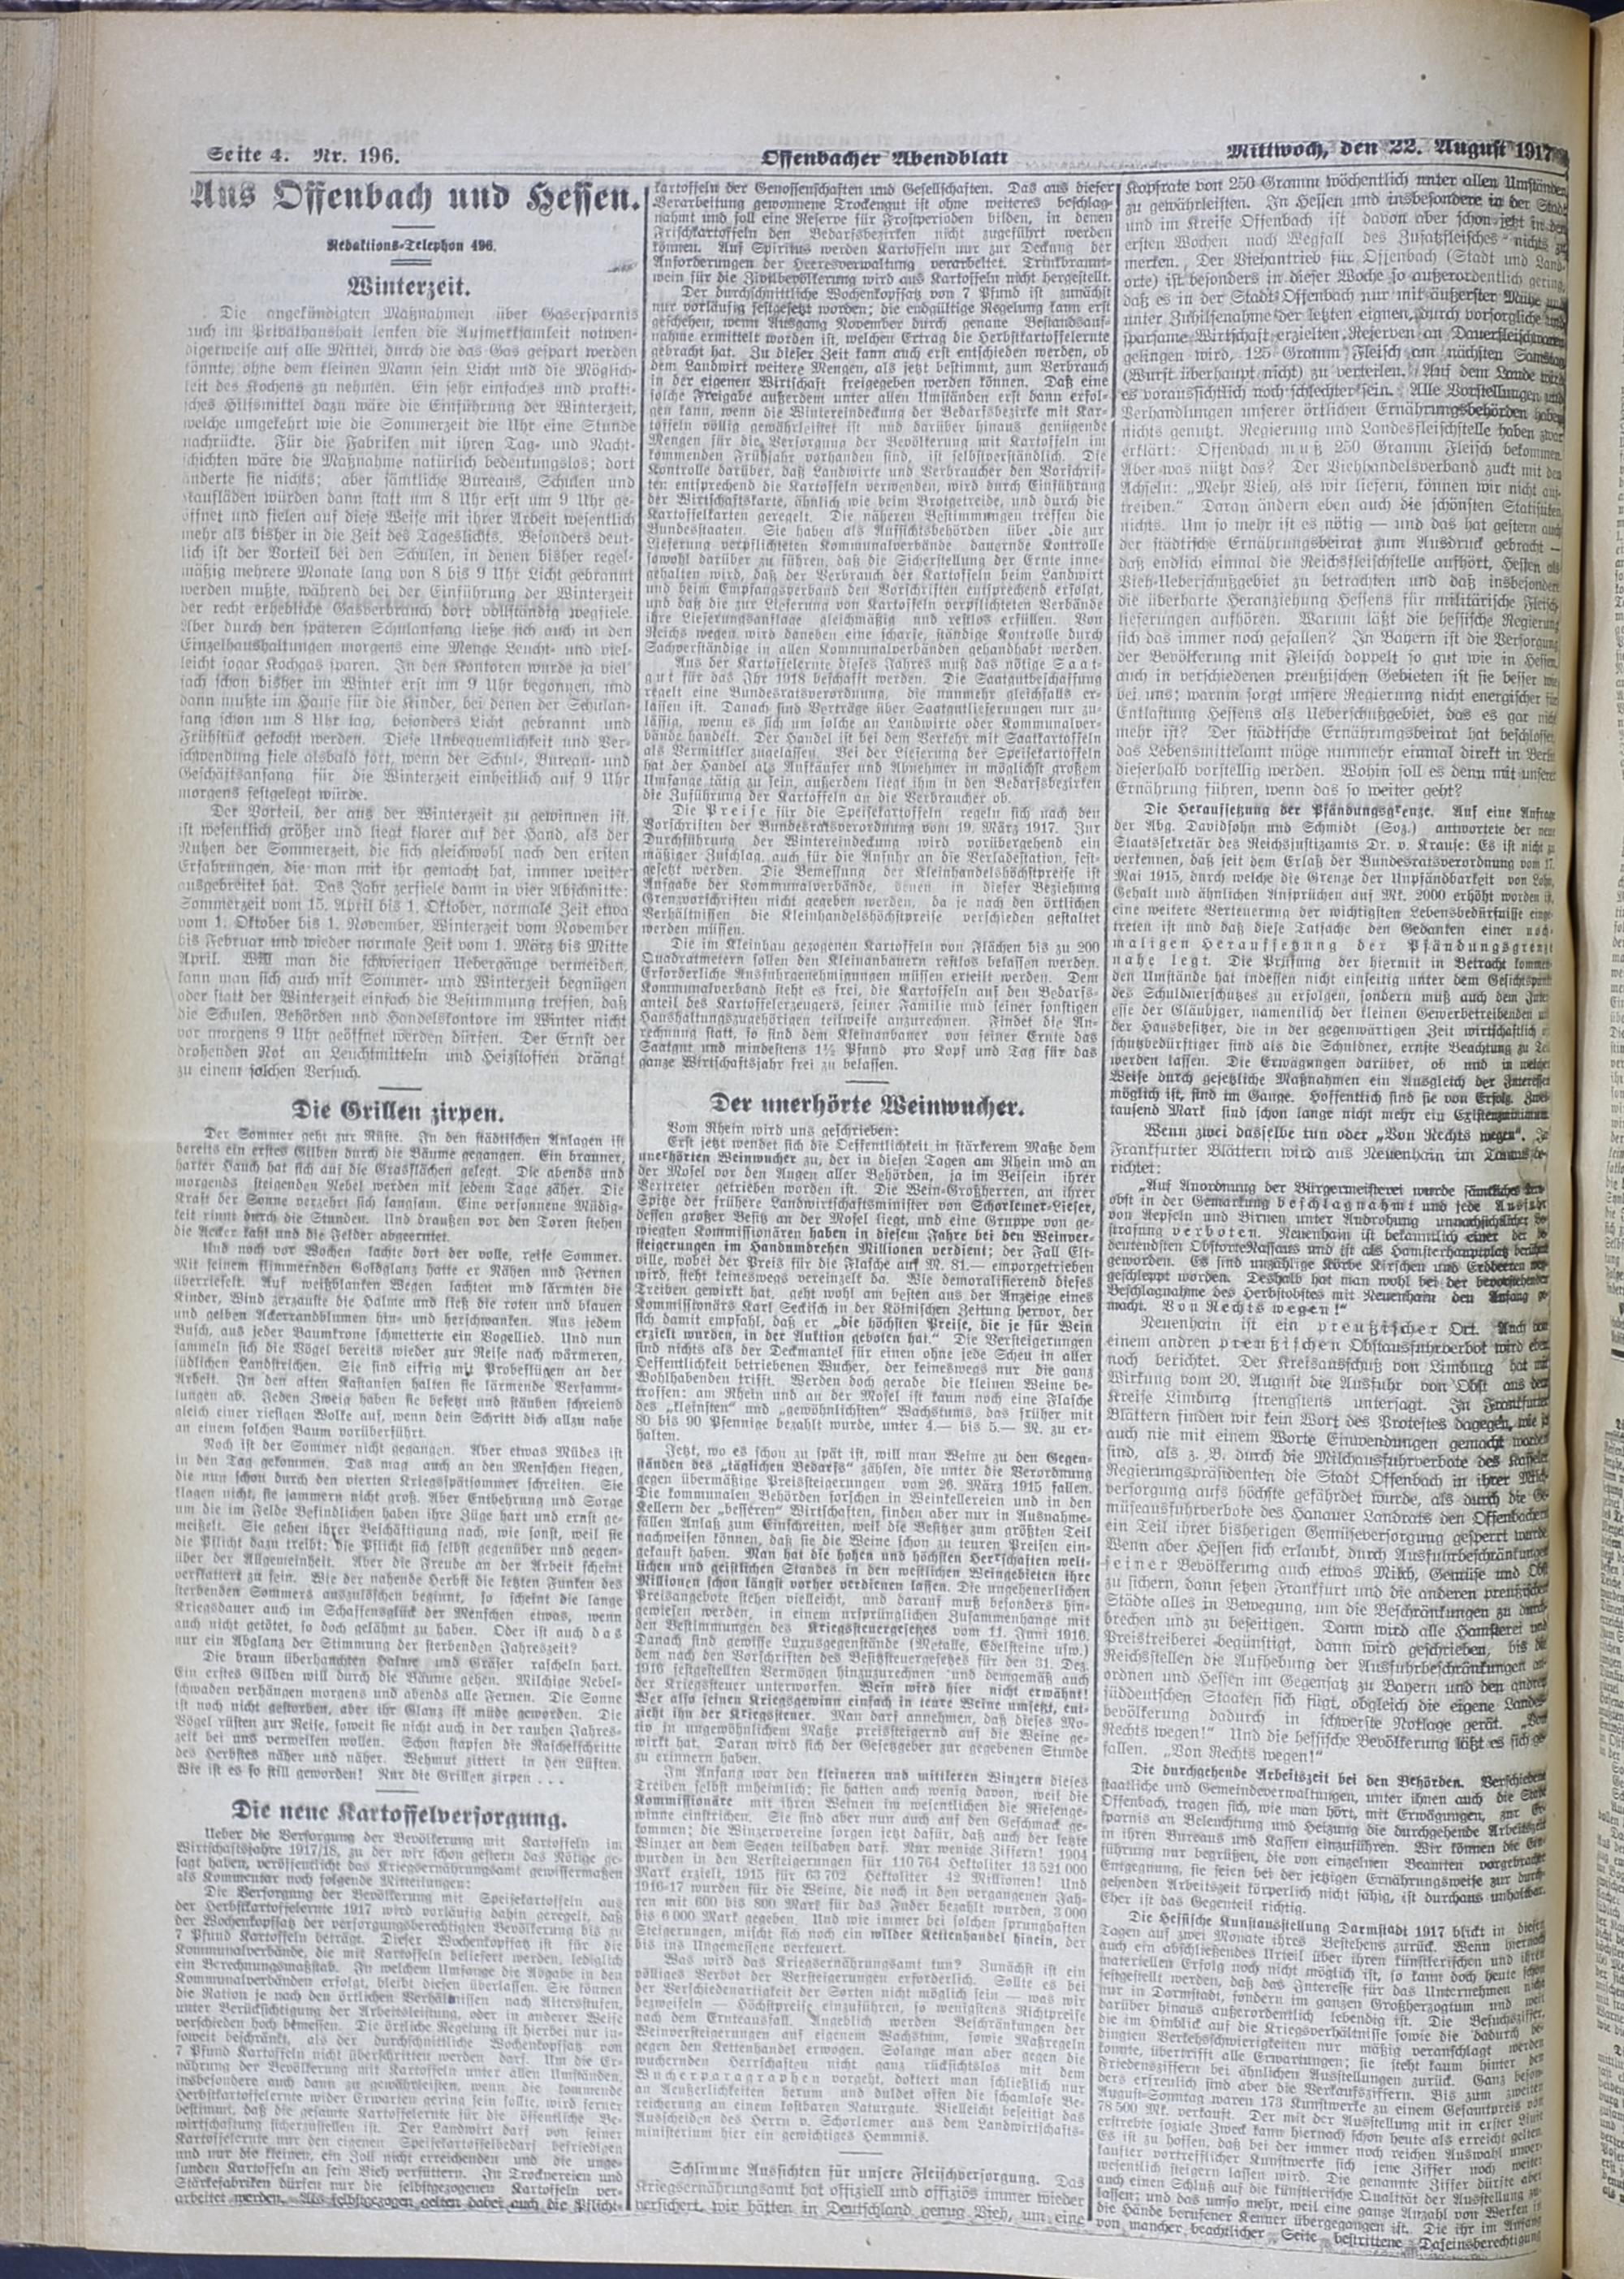 Seite 4. Nr. 196.
Offenbacher Abendblatt
Mittwoch, den 22. August 1917
Aus Offenbach und Hessen.
Redaktions-Telephon 496.
Winterzeit.
Die angekündigten Maßnahmen über Gasersparnis
auch im Privathaushalt lenken die Aufmerksamkeit notwen-
digerweise auf alle Mittel, durch die das Gas gespart werden
könnte, ohne dem kleinen Mann sein Licht und die Möglich-
keit des Kochens zu nehmen. Ein sehr einfaches und prakti-
sches Hilfsmittel dazu wäre die Einführung der Winterzeit,
welche umgekehrt wie die Sommerzeit die Uhr eine Stunde
nachrückte. Für die Fabriken mit ihren Tag- und Nacht-
schichten wäre die Maßnahme natürlich bedeutungslos; dort
änderte sie nichts; aber sämtliche Bureaus, Schulen und
Kaufläden würden dann statt um 8 Uhr erst um 9 Uhr ge-
öffnet und fielen auf diese Weise mit ihrer Arbeit wesentlich
mehr als bisher in die Zeit des Tageslichts. Besonders deut-
lich ist der Vorteil bei den Schulen, in denen bisher regel-
mäßig mehrere Monate lang von 8 bis 9 Uhr Licht gebrannt
werden mußte, während bei der Einführung der Winterzeit
der recht erhebliche Gasverbrauch dort vollständig wegfiele.
Aber durch den späteren Schulanfang ließe sich auch in den
Einzelhaushaltungen morgens eine Menge Leucht- und viel-
leicht sogar Kochgas sparen. In den Kontoren wurde ja viel-
fach schon bisher im Winter erst um 9 Uhr begonnen, und
dann mußte im Hause für die Kinder, bei denen der Schulan-
fang schon um 8 Uhr lag, besonders Licht gebrannt und
Frühstück gekocht werden. Diese Unbequemlichkeit und Ver-
schwendung fiele alsbald fort, wenn der Schul-, Bureau- und
Geschäftsanfang für die Winterzeit einheitlich auf 9 Uhr
morgens festgelegt würde.
Der Vorteil, der aus der Winterzeit zu gewinnen ist,
ist wesentlich größer und liegt klarer auf der Hand, als der
Nutzen der Sommerzeit, die sich gleichwohl nach den ersten
Erfahrungen, die man mit ihr gemacht hat, immer weiter
ausgebreitet hat. Das Jahr zerfiele dann in vier Abschnitte:
Sommerzeit vom 15. April bis 1. Oktober, normale Zeit etwa
vom 1. Oktober bis 1. November, Winterzeit vom November
bis Februar und wieder normale Zeit vom 1. März bis Mitte
April. Will man die schwierigen Uebergänge vermeiden,
kann man sich auch mit Sommer- und Winterzeit begnügen
oder statt der Winterzeit einfach die Bestimmung treffen, daß
die Schulen, Behörden und Handelskontore im Winter nicht
vor morgens 9 Uhr geöffnet werden dürfen. Der Ernst der
drohenden Not an Leuchtmitteln und Heizstoffen drängt
zu einem solchen Versuch.
Die Grillen zirpen.
Der Sommer geht zur Rüste. In den städtischen Anlagen ist
bereits ein erstes Gilben durch die Bäume gegangen. Ein brauner,
harter Hauch hat sich auf die Grasflächen gelegt. Die abends und
morgends steigenden Nebel werden mit jedem Tage zäher. Die
Kraft der Sonne verzehrt sich langsam. Eine versonnene Müdig-
keit rinnt durch die Stunden. Und draußen vor den Toren stehen
die Aecker kahl und die Felder abgeerntet.
Und noch vor Wochen lachte dort der volle, reife Sommer.
Mit seinem flimmernden Goldglanz hatte er Nähen und Fernen
überrieselt. Auf weißblanken Wegen lachten und lärmten die
Kinder, Wind zerzauste die Halme und ließ die roten und blauen
und gelben Ackerrandblumen hin- und herschwanken. Aus jedem
Busch, aus jeder Baumkrone schmetterte ein Vogellied. Und nun
sammeln sich die Vögel bereits wieder zur Reise nach wärmeren,
südlichen Landstrichen. Sie sind eifrig mit Probeflügen an der
Arbeit. In den alten Kastanien halten sie lärmende Versamm-
lungen ab. Jeden Zweig haben sie besetzt und stäuben schreiend
gleich einer riesigen Wolke auf, wenn dein Schritt dich allzu nahe
an einem solchen Baum vorüberführt.
Noch ist der Sommer nicht gegangen. Aber etwas Müdes ist
in den Tag gekommen. Das mag auch an den Menschen liegen,
die nun schon durch den vierten Kriegsspätsommer schreiten. Sie
klagen nicht, sie jammern nicht groß. Aber Entbehrung und Sorge
um die im Felde Befindlichen haben ihre Züge hart und ernst ge-
meißelt. Sie gehen ihrer Beschäftigung nach, wie sonst, weil sie
die Pflicht dazu treibt: die Pflicht sich selbst gegenüber und gegen-
über der Allgemeinheit. Aber die Freude an der Arbeit scheint
verflattert zu sein. Wie der nahende Herbst die letzten Funken des
sterbenden Sommers auszulöschen beginnt, so scheint die lange
Kriegsdauer auch im Schaffensglück der Menschen etwas, wenn
auch nicht getötet, so doch gelähmt zu haben. Oder ist auch das
nur ein Abglanz der Stimmung der sterbenden Jahreszeit?
Die braun überhauchten Halme und Gräser rascheln hart.
Ein erstes Gilben will durch die Bäume gehen. Milchige Nebel-
schwaden verhängen morgens und abends alle Fernen. Die Sonne
ist noch nicht gestorben, aber ihr Glanz ist müde geworden. Die
Vögel rüsten zur Reise, soweit sie nicht auch in der rauhen Jahres-
zeit bei uns verweilen wollen. Schon stapfen die Raschelschritte
des Herbstes näher und näher. Wehmut zittert in den Lüften.
Wie ist es so still geworden! Nur die Grillen zirpen . . .
Die neue Kartoffelversorgung.
Ueber die Versorgung der Bevölkerung mit Kartoffeln im
Wirtschaftsjahre 1917/18, zu der wir schon gestern das Nötige ge-
sagt haben, veröffentlicht das Kriegsernährungsamt gewissermaßen
als Kommentar noch folgende Mitteilungen:
Die Versorgung der Bevölkerung mit Speisekartoffeln aus
der Herbstkartoffelernte 1917 wird vorläufig dahin geregelt, daß
der Wochenkopfsatz der versorgungsberechtigten Bevölkerung bis zu
7 Pfund Kartoffeln beträgt. Dieser Wochenkopfsatz ist für die
Kommunalverbände, die mit Kartoffeln beliefert werden, lediglich
ein Berechnungsmaßstab. In welchem Umfange die Abgabe in den
Kommunalverbänden erfolgt, bleibt diesen überlassen. Sie können
die Ration je nach den örtlichen Verhältnissen nach Altersstufen,
unter Berücksichtigung der Arbeitsleistung, oder in anderer Weise
verschieden hoch bemessen. Die örtliche Regelung ist hierbei nur in-
soweit beschränkt, als der durchschnittliche Wochenkopfsatz von
7 Pfund Kartoffeln nicht überschritten werden darf. Um die Er-
nährung der Bevölkerung mit Kartoffeln unter allen Umständen,
insbesondere auch dann zu gewährleisten, wenn die kommende
Herbstkartoffelernte wider Erwarten gering sein sollte, wird ferner
bestimmt, daß die gesamte Kartoffelernte für die öffentliche Be-
wirtschaftung sicherzustellen ist. Der Landwirt darf von seiner
Kartoffelernte nur den eigenen Speisekartoffelbedarf befriedigen
und nur die kleinen, ein Zoll nicht erreichenden und die unge-
sunden Kartoffeln an sein Vieh verfüttern. In Trocknereien und
Stärkefabriken dürfen nur die selbstgezogenen Kartoffeln ver-
arbeitet werden. Als selbstgezogen gelten dabei auch die Pflicht-
kartoffeln der Genossenschaften und Gesellschaften. Das aus dieser
Verarbeitung gewonnene Trockengut ist ohne weiteres beschlag-
nahmt und soll eine Reserve für Frostperioden bilden, in denen
Frischkartoffeln den Bedarfsbezirken nicht zugeführt werden
können. Auf Spiritus werden Kartoffeln nur zur Deckung der
Anforderungen der Heeresverwaltung verarbeitet. Trinkbrannt-
wein für die Zivilbevölkerung wird aus Kartoffeln nicht hergestellt.
Der durchschnittliche Wochenkopfsatz von 7 Pfund ist zunächst
nur vorläufig festgesetzt worden; die endgültige Regelung kann erst
geschehen, wenn Ausgang November durch genaue Bestandsauf-
nahme ermittelt worden ist, welchen Ertrag die Herbstkartoffelernte
gebracht hat. Zu dieser Zeit kann auch erst entschieden werden, ob
dem Landwirt weitere Mengen, als jetzt bestimmt, zum Verbrauch
in der eigenen Wirtschaft freigegeben werden können. Daß eine
solche Freigabe außerdem unter allen Umständen erst dann erfol-
gen kann, wenn die Wintereindeckung der Bedarfsbezirke mit Kar-
toffeln völlig gewährleistet ist und darüber hinaus genügende
Mengen für die Versorgung der Bevölkerung mit Kartoffeln im
kommenden Frühjahr vorhanden sind, ist selbstverständlich. Die
Kontrolle darüber, daß Landwirte und Verbraucher den Vorschrif-
ten entsprechend die Kartoffeln verwenden, wird durch Einführung
der Wirtschaftskarte, ähnlich wie beim Brotgetreide, und durch die
Kartoffelkarten geregelt. Die näheren Bestimmungen treffen die
Bundesstaaten. Sie haben als Aufsichtsbehörden über die zur
Lieferung verpflichteten Kommunalverbände dauernde Kontrolle
sowohl darüber zu führen, daß die Sicherstellung der Ernte inne-
gehalten wird, daß der Verbrauch der Kartoffeln beim Landwirt
und beim Empfangsverband den Vorschriften entsprechend erfolgt,
und daß die zur Lieferung von Kartoffeln verpflichteten Verbände
ihre Lieferungsauflage gleichmäßig und restlos erfüllen. Von
Reichs wegen wird daneben eine scharfe, ständige Kontrolle durch
Sachverständige in allen Kommunalverbänden gehandhabt werden.
Aus der Kartoffelernte dieses Jahres muß das nötige Saat-
gut für das Ihr 1918 beschafft werden. Die Saatgutbeschaffung
regelt eine Bundesratsverordnung, die nunmehr gleichfalls er-
lassen ist. Danach sind Verträge über Saatgutlieferungen nur zu-
lässig, wenn es sich um solche an Landwirte oder Kommunalver-
bände handelt. Der Handel ist bei dem Verkehr mit Saatkartoffeln
als Vermittler zugelassen. Bei der Lieferung der Speisekartoffeln
hat der Handel als Aufkäufer und Abnehmer in möglichst großem
Umfange tätig zu sein, außerdem liegt ihm in den Bedarfsbezirken
die Zuführung der Kartoffeln an die Verbraucher ob.
Die Preise für die Speisekartoffeln regeln sich nach den
Vorschriften der Bundesratsverordnung vom 19. März 1917. Zur
Durchführung der Wintereindeckung wird vorübergehend ein
mäßiger Zuschlag, auch für die Anfuhr an die Verladestation, fest-
gesetzt werden. Die Bemessung der Kleinhandelshöchstpreise ist
Aufgabe der Kommunalverbände, denen in dieser Beziehung
Grenzvorschriften nicht gegeben werden, da je nach den örtlichen
Verhältnissen die Kleinhandelshöchstpreise verschieden gestaltet
werden müssen.
Die im Kleinbau gezogenen Kartoffeln von Flächen bis zu 200
Quadratmetern sollen den Kleinanbauern restlos belassen werden.
Erforderliche Ausfuhrgenehmigungen müssen erteilt werden. Dem
Kommunalverband steht es frei, die Kartoffeln auf den Bedarfs-
anteil des Kartoffelerzeugers, seiner Familie und seiner sonstigen
Haushaltungszugehörigen teilweise anzurechnen. Findet die An-
rechnung statt, so sind dem Kleinanbauer von seiner Ernte das
Saatgut und mindestens 1½ Pfund pro Kopf und Tag für das
ganze Wirtschaftsjahr frei zu belassen.
Der unerhörte Weinwucher.
Vom Rhein wird uns geschrieben:
Erst jetzt wendet sich die Oeffentlichkeit in stärkerem Maße dem
unerhörten Weinwucher zu, der in diesen Tagen am Rhein und an
der Mosel vor den Augen aller Behörden, ja im Beisein ihrer
Vertreter getrieben worden ist. Die Wein-Großherren, an ihrer
Spitze der frühere Landwirtschaftsminister von Schorlemer-Lieser,
dessen großer Besitz an der Mosel liegt, und eine Gruppe von ge-
wiegten Kommissionären haben in diesem Jahre bei den Weinver-
steigerungen im Handumdrehen Millionen verdient; der Fall Elt-
ville, wobei der Preis für die Flasche auf M. 81.— emporgetrieben
wird, steht keineswegs vereinzelt da. Wie demoralisierend dieses
Treiben gewirkt hat, geht wohl am besten aus der Anzeige eines
Kommissionärs Karl Seckisch in der Kölnischen Zeitung hervor, der
sich damit empfahl, daß er „die höchsten Preise, die je für Wein
erzielt wurden, in der Auktion geboten hat.“ Die Versteigerungen
sind nichts als der Deckmantel für einen ohne jede Scheu in aller
Oeffentlichkeit betriebenen Wucher, der keineswegs nur die ganz
Wohlhabenden trifft. Werden doch gerade die kleinen Weine be-
troffen: am Rhein und an der Mosel ist kaum noch eine Flasche
des „kleinsten“ und „gewöhnlichsten“ Wachstums, das früher mit
80 bis 90 Pfennige bezahlt wurde, unter 4.— bis 5.— M. zu er-
halten.
Jetzt, wo es schon zu spät ist, will man Weine zu den Gegen-
ständen des „täglichen Bedarfs“ zählen, die unter die Verordnung
gegen übermäßige Preissteigerungen vom 26. März 1915 fallen.
Die kommunalen Behörden forschen in Weinkellereien und in den
Kellern der „besseren“ Wirtschaften, finden aber nur in Ausnahme-
fällen Anlaß zum Einschreiten, weil die Besitzer zum größten Teil
nachweisen können, daß sie die Weine schon zu teuren Preisen ein-
gekauft haben. Man hat die hohen und höchsten Herrschaften welt-
lichen und geistlichen Standes in den westlichen Weingebieten ihre
Millionen schon längst vorher verdienen lassen. Die ungeheuerlichen
Preisangebote stehen vielleicht, und darauf muß besonders hin-
gewiesen werden, in einem ursprünglichen Zusammenhange mit
den Bestimmungen des Kriegssteuergesetzes vom 11. Juni 1916.
Danach sind gewisse Luxusgegenstände (Metalle, Edelsteine usw.)
dem nach den Vorschriften des Besitzsteuergesetzes für den 31. Dez.
1916 festgestellten Vermögen hinzuzurechnen und demgemäß auch
der Kriegssteuer unterworfen. Wein wird hier nicht erwähnt!
Wer also seinen Kriegsgewinn einfach in teure Weine umsetzt, ent-
zieht ihn der Kriegssteuer. Man darf annehmen, daß dieses Mo-
tiv in ungewöhnlichem Maße preissteigernd auf die Weine ge-
wirkt hat. Daran wird sich der Gesetzgeber zur gegebenen Stunde
zu erinnern haben.
Im Anfang war den kleineren und mittleren Winzern dieses
Treiben selbst unheimlich; sie hatten auch wenig davon, weil die
Kommissionäre mit ihren Weinen im wesentlichen die Riesenge-
winne einstrichen. Sie sind aber nun auch auf den Geschmack ge-
kommen; die Winzervereine sorgen jetzt dafür, daß auch der letzte
Winzer an dem Segen teilhaben darf. Nur wenige Ziffern! 1904
wurden in den Versteigerungen für 110 764 Hektoliter 13 521 000
Mark erzielt, 1915 für 63 702 Hektoliter 42 Millionen! Und
1916-17 wurden für die Weine, die noch in den vergangenen Jah-
ren mit 600 bis 800 Mark für das Fuder bezahlt wurden, 3 000
bis 6 000 Mark gegeben. Und wie immer bei solchen sprunghaften
Steigerungen, mischt sich noch ein wilder Kettenhandel hinein, der
bis ins Ungemessene verteuert.
Was wird das Kriegsernährungsamt tun? Zunächst ist ein
völliges Verbot der Versteigerungen erforderlich. Sollte es bei
der Verschiedenartigkeit der Sorten nicht möglich sein — was wir
bezweifeln — Höchstpreise einzuführen, so wenigstens Richtpreise
nach dem Ernteausfall. Angeblich werden Beschränkungen der
Weinversteigerungen auf eigenem Wachstum, sowie Maßregeln
gegen den Kettenhandel erwogen. Solange man aber gegen die
wuchernden Herrschaften nicht ganz rücksichtslos mit dem
Wucherparagraphen vorgeht, doktert man schließlich nur
an Aeußerlichkeiten herum und duldet offen die schamlose Be-
reicherung an einem kostbaren Naturgute. Vielleicht beseitigt das
Ausscheiden des Herrn v. Schorlemer aus dem Landwirtschafts-
ministerium hier ein gewichtiges Hemmnis.
Schlimme Aussichten für unsere Fleischversorgung. Das
Kriegsernährungsamt hat offiziell und offiziös immer wieder
versichert, wir hätten in Deutschland genug Vieh, um eine
Kopfrate von 250 Gramm wöchentlich unter allen Umständen
zu gewährleisten. In Hessen und insbesondere in der Stadt
und im Kreise Offenbach ist davon aber schon jetzt in den
ersten Wochen nach Wegfall des Zusatzfleisches nichts zu
merken. Der Viehantrieb für Offenbach (Stadt und Land-
orte) ist besonders in dieser Woche so außerordentlich gering,
daß es in der Stadt Offenbach nur mit äußerster Mühe und
unter Zuhilfenahme der letzten eignen, durch vorsorgliche und
sparsame Wirtschaft erzielten Reserven an Dauerfleischwaren
gelingen wird, 125 Gramm Fleisch am nächsten Samstag
(Wurst überhaupt nicht) zu verteilen. Auf dem Lande wird
es voraussichtlich noch schlechter sein. Alle Vorstellungen und
Verhandlungen unserer örtlichen Ernährungsbehörden haben
nichts genutzt. Regierung und Landesfleischstelle haben zwar
erklärt: Offenbach muß 250 Gramm Fleisch bekommen.
Aber was nützt das? Der Viehhandelsverband zuckt mit den
Achseln: „Mehr Vieh, als wir liefern, können wir nicht auf-
treiben.“ Daran ändern eben auch die schönsten Statistiken
nichts. Um so mehr ist es nötig — und das hat gestern auch
der städtische Ernährungsbeirat zum Ausdruck gebracht —
daß endlich einmal die Reichsfleischstelle aufhört, Hessen als
Vieh-Ueberschußgebiet zu betrachten und daß insbesondere
die überharte Heranziehung Hessens für militärische Fleisch-
lieferungen aufhören. Warum läßt die hessische Regierung
sich das immer noch gefallen? In Bayern ist die Versorgung
der Bevölkerung mit Fleisch doppelt so gut wie in Hessen,
auch in verschiedenen preußischen Gebieten ist sie besser wie
bei uns; warum sorgt unsere Regierung nicht energischer für
Entlastung Hessens als Ueberschußgebiet, das es gar nicht
mehr ist? Der städtische Ernährungsbeirat hat beschlossen,
das Lebensmittelamt möge nunmehr einmal direkt in Berlin
dieserhalb vorstellig werden. Wohin soll es denn mit unserer
Ernährung führen, wenn das so weiter geht?
Die Heraufsetzung der Pfändungsgrenze. Auf eine Anfrage
der Abg. Davidsohn und Schmidt (Soz.) antwortete der neue
Staatssekretär des Reichsjustizamts Dr. v. Krause: Es ist nicht zu
verkennen, daß seit dem Erlaß der Bundesratsverordnung vom 17.
Mai 1915, durch welche die Grenze der Unpfändbarkeit von Lohn,
Gehalt und ähnlichen Ansprüchen auf Mk. 2000 erhöht worden ist,
eine weitere Verteuerung der wichtigsten Lebensbedürfnisse einge-
treten ist und daß diese Tatsache den Gedanken einer noch-
maligen Heraufsetzung der Pfändungsgrenze
nahe legt. Die Prüfung der hiermit in Betracht kommen-
den Umstände hat indessen nicht einseitig unter dem Gesichtspunkt
des Schuldnerschutzes zu erfolgen, sondern muß auch dem Inter-
esse der Gläubiger, namentlich der kleinen Gewerbetreibenden und
der Hausbesitzer, die in der gegenwärtigen Zeit wirtschaftlich
schutzbedürftiger sind als die Schuldner, ernste Beachtung zu Teil
werden lassen. Die Erwägungen darüber, ob und in welcher
Weise durch gesetzliche Maßnahmen ein Ausgleich der Interessen
möglich ist, sind im Gange. Hoffentlich sind sie von Erfolg. Zwei-
tausend Mark sind schon lange nicht mehr ein Existenzminimum.
Wenn zwei dasselbe tun oder „Von Rechts wegen“. In
Frankfurter Blättern wird aus Neuenhain im Taunus be-
richtet:
„Auf Anordnung der Bürgermeisterei wurde sämtliches
obst in der Gemarkung beschlagnahmt und jede Ausfuhr
von Aepfeln und Birnen unter Androhung unnachsichtlicher Be-
strafung verboten. Neuenhain ist bekanntlich einer der be-
deutendsten Obstorte Nassaus und ist als Hamsterhauptplatz berühmt
geworden. Es sind unzählige Körbe Kirschen und Erdbeeren ver-
geschleppt worden. Deshalb hat man wohl bei der bevorstehenden
Beschlagnahme des Herbstobstes mit Neuenhain den Anfang ge-
macht. Von Rechts wegen!“
Neuenhain ist ein preußischer Ort. Auch von
einem andren preußischen Obstausfuhrverbot wird eben
noch berichtet. Der Kreisausschuß von Limburg hat mit
Wirkung vom 20. August die Ausfuhr von Obst aus dem
Kreise Limburg strengstens untersagt. In Frankfurter
Blättern finden wir kein Wort des Protestes dagegen, wie ja
auch nie mit einem Worte Einwendungen gemacht worden
sind, als z. B. durch die Milchausfuhrverbote des Kasseler
Regierungspräsidenten die Stadt Offenbach in ihrer Milch-
versorgung aufs höchste gefährdet wurde, als durch die Ge-
müseausfuhrverbote des Hanauer Landrats den Offenbachern
ein Teil ihrer bisherigen Gemüseversorgung gesperrt wurde.
Wenn aber Hessen sich erlaubt, durch Ausfuhrbeschränkungen
seiner Bevölkerung auch etwas Milch, Gemüse und Obst
zu sichern, dann setzen Frankfurt und die anderen preußischen
Städte alles in Bewegung, um die Beschränkungen zu durch-
brechen und zu beseitigen. Dann wird alle Hamsterei und
Preistreiberei begünstigt, dann wird geschrieben, bis die
Reichsstellen die Aufhebung der Ausfuhrbeschränkungen an-
ordnen und Hessen im Gegensatz zu Bayern und den andren
süddeutschen Staaten sich fügt, obgleich die eigene Landes-
bevölkerung dadurch in schwerste Notlage gerät. „Von
Rechts wegen!“ Und die hessische Bevölkerung läßt es sich ge-
fallen. „Von Rechts wegen!“
Die durchgehende Arbeitszeit bei den Behörden. Verschiedene
staatliche und Gemeindeverwaltungen, unter ihnen auch die Stadt
Offenbach, tragen sich, wie man hört, mit Erwägungen, zur Er-
sparnis an Beleuchtung und Heizung die durchgehende Arbeitszeit
in ihren Bureaus und Kassen einzuführen. Wir können die Ein-
führung nur begrüßen, die von einzelnen Beamten vorgebrachte
Entgegnung, sie seien bei der jetzigen Ernährungsweise zur durch-
gehenden Arbeitszeit körperlich nicht fähig, ist durchaus unhaltbar.
Eher ist das Gegenteil richtig.
Die Hessische Kunstausstellung Darmstadt 1917 blickt in diesen
Tagen auf zwei Monate ihres Bestehens zurück. Wenn hiernach
auch ein abschließendes Urteil über ihren künstlerischen und ihren
materiellen Erfolg noch nicht möglich ist, so kann doch heute schon
festgestellt werden, daß das Interesse für das Unternehmen nicht
nur in Darmstadt, sondern im ganzen Großherzogtum und weit
darüber hinaus außerordentlich lebendig ist. Die Besuchsziffer,
die im Hinblick auf die Kriegsverhältnisse sowie die dadurch be-
dingten Verkehrsschwierigkeiten nur mäßig veranschlagt werden
konnte, übertrifft alle Erwartungen; sie steht kaum hinter den
Friedensziffern bei ähnlichen Ausstellungen zurück. Ganz beson-
ders erfreulich sind aber die Verkaufsziffern. Bis zum zweiten
August-Sonntag waren 173 Kunstwerke zu einem Gesamtpreis von
78 500 Mk. verkauft. Der mit der Ausstellung mit in erster Linie
erstrebte soziale Zweck kann hiernach schon heute als erreicht gelten.
Es ist zu hoffen, daß bei der immer noch reichen Auswahl unver-
kaufter vortrefflicher Kunstwerke sich jene Ziffer noch weiter
wesentlich steigern lassen wird. Die genannte Ziffer dürfte aber
auch einen Schluß auf die künstlerische Qualität der Ausstellung zu-
lassen; und das umso mehr, weil eine ganze Anzahl von Werken in
die Hände berufener Kenner übergegangen ist. Die ihr im Anfang
von mancher beachtlicher Seite bestrittene Daseinsberechtigung